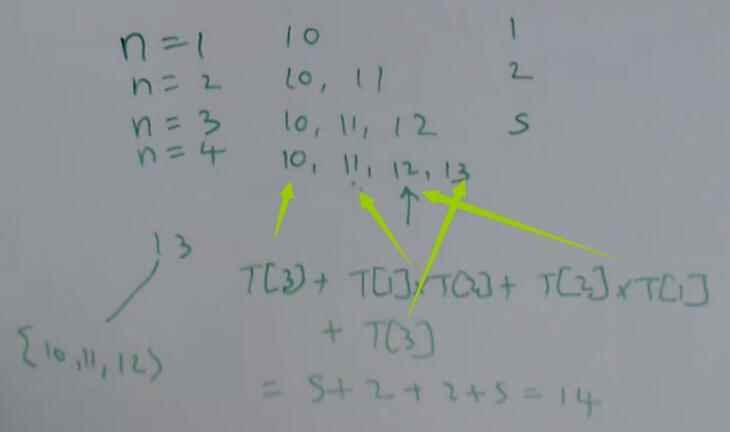 n = 1 10 1
n = 2 10, 11 2
n = 3 10, 11, 12 5
n = 4 10, 11, 12, 13
13
T[3] + T[1]xT[2] + T[2]xT[1]
+ T[3]
{10,11,12}
= 5+ 2 + 2+5 = 14